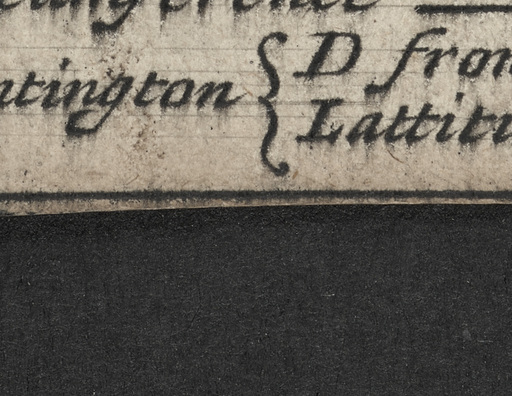 ntington { D from
Lattitu